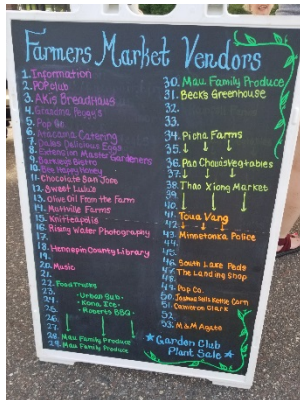 Farmers Market Vendors
1. Information
2. POP Club
3. AKis BreadHaus
4. Grandma Peggy's
5. Pop Pie
6. Atacama Catering
7. Dales Delicious Eggs
8. Extension Master Gardeners
9. Bistro
10. Bee Happy Honey
11. Chocolate Ban Joes
12. Sweet Lulu's
13. Olive Oil From the Farm
14. Mothville Farms
15. Kniftcapelle
16. Rising Water Photography
17.
18. Hennepin County Library
19.
20. Music
21.
22. Food Trucks
23. -Urban Sub-
24. -Kona Ice-
25. -Roberts BBQ-
26.
27.
28. Mau Family Produce
29. Mau Family Produce
30. Mau Family Produce
31. Becks Greenhouse
32.
33.
34. Picha Farms
35.
36. Pao Chouis Vegtables
37.
38. Thao Xiong Market
39.
40.
41. Toua Vang
42.
43. Minnetonka Police
44.
45.
46. South Lake Peds
47. The Landing Shop
48.
49. Pop Co.
50. Kettle Corn
51. Cameron Clark
52.
53. M&M Agate
Garden Club
Plant Sale